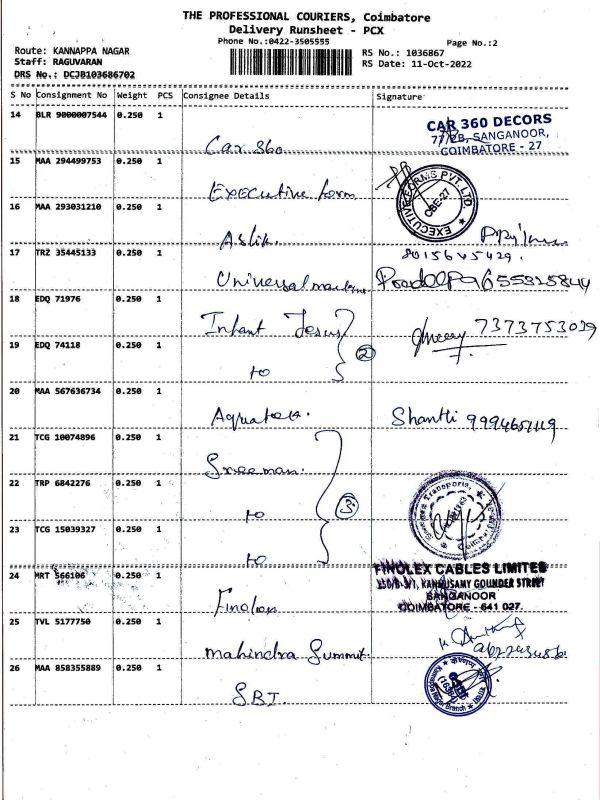 THE PROFESSIONAL COURIERS, Coimbatore
Delivery Runsheet - PCX
Phone No.:0422-3505555
Page No.:2
Route: KANNAPPA NAGAR
RS No.: 1036867
Staff: RAGUVARAN
RS Date: 11-Oct-2022
DRS No.: DCJB103686702
S No Consignment No Weight PCS Consignee Details Signature
14 BLR 9000007544 0.250 1 Car 360
CAR 360 DECORS
77/2B, SANGANOOR,
COIMBATORE - 27
15 MAA 294499753 0.250 1 Executive form
EXECUTIVE FORMS PVT. LTD.
CBE-27
16 MAA 293031210 0.250 1 Aslik.
17 TRZ 35445133 0.250 1 Universal
18 EDQ 71976 0.250 1 Infant Jesus
7373753029
19 EDQ 74118 0.250 1 to
2
20 MAA 567636734 0.250 1
Shanthi
21 TCG 10074896 0.250 1 Sreeman.
22 TRP 6842276 0.250 1 to
3
23 TCG 15039327 0.250 1 to
24 MRT 566106 0.250 1 Finolex
FINOLEX CABLES LIMITED
KANNUSAMY GOUNDER STREET
SANGANOOR
COIMBATORE - 641 027.
25 TVL 5177750 0.250 1 Mahindra Summit.
26 MAA 858355889 0.250 1 SBI.